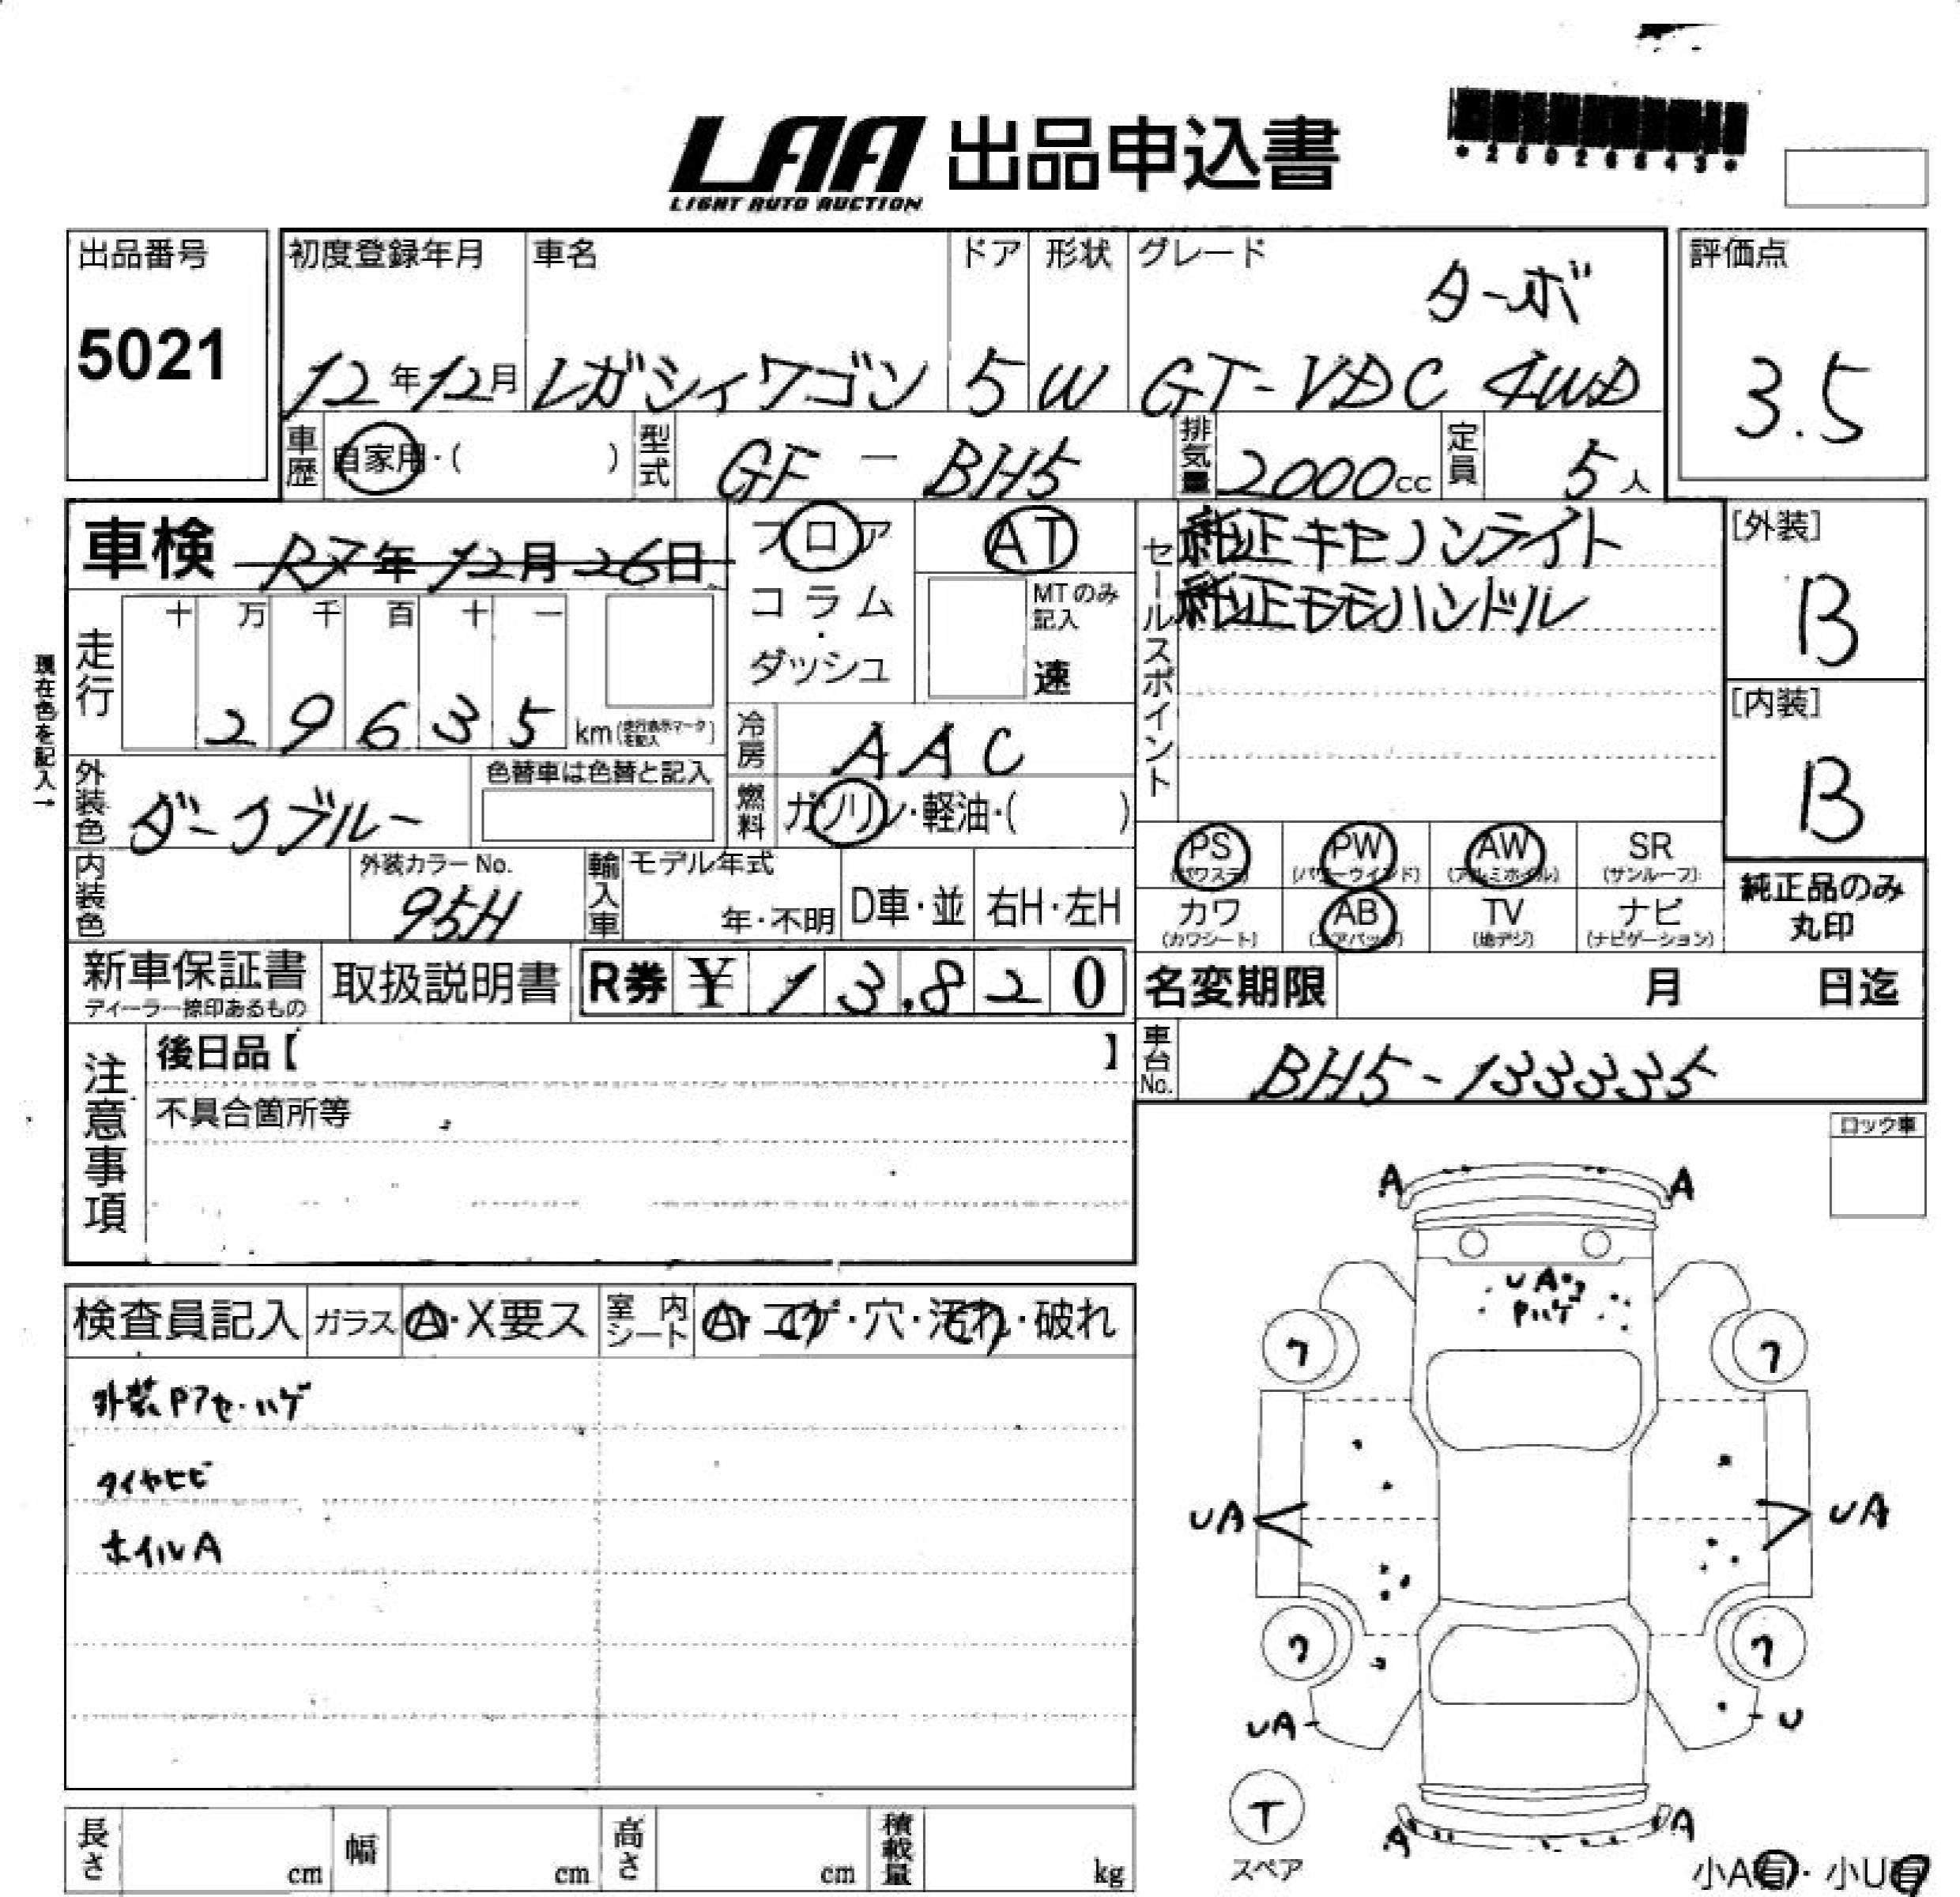 LAA 出品申込書
LIGHT AUTO AUCTION
出品番号
5021
初度登録年月
12年12月
車名
レガシィワゴン
ドア
5
形状
W
グレード
ターボ
GT-VDC 4WD
評価点
3.5
車歴
自家用・( )
型式
GF - BH5
排気量
2000cc
定員
5人
車検 R7年12月26日
フロア
コラム
・
ダッシュ
AT
MTのみ
記入
速
セールスポイント
純正キセノンライト
純正モモハンドル
[外装]
B
[内装]
B
現在色を記入→
走行
十 万 千 百 十 一
2 9 6 3 5 km(走行表示マークを記入)
冷房
AAC
燃料
ガソリン・軽油・( )
外装色
ダークブルー
色替車は色替と記入
内装色
外装カラーNo.
95H
輸入車
モデル年式
年・不明
D車・並
右H・左H
PS
(パワステ)
PW
(パワーウインド)
AW
(アルミホイル)
SR
(サンルーフ)
カワ
(カワシート)
AB
(エアバッグ)
TV
(地デジ)
ナビ
(ナビゲーション)
純正品のみ
丸印
新車保証書
ディーラー捺印あるもの
取扱説明書
R券 ¥ 13,820
名変期限 月 日迄
注意事項
後日品【 】
不具合箇所等
車台No.
BH5-133335
ロック車
検査員記入
ガラス
A・X要ス
室内シート
A・コゲ・穴・汚れ・破れ
外装Pアセ・ハゲ
タイヤヒビ
ホイルA
A A
UA
Pハゲ
7 7
UA UA
7 7
UA U
T
スペア
A A
小A有・小U有
長さ cm
幅 cm
高さ cm
積載量 kg